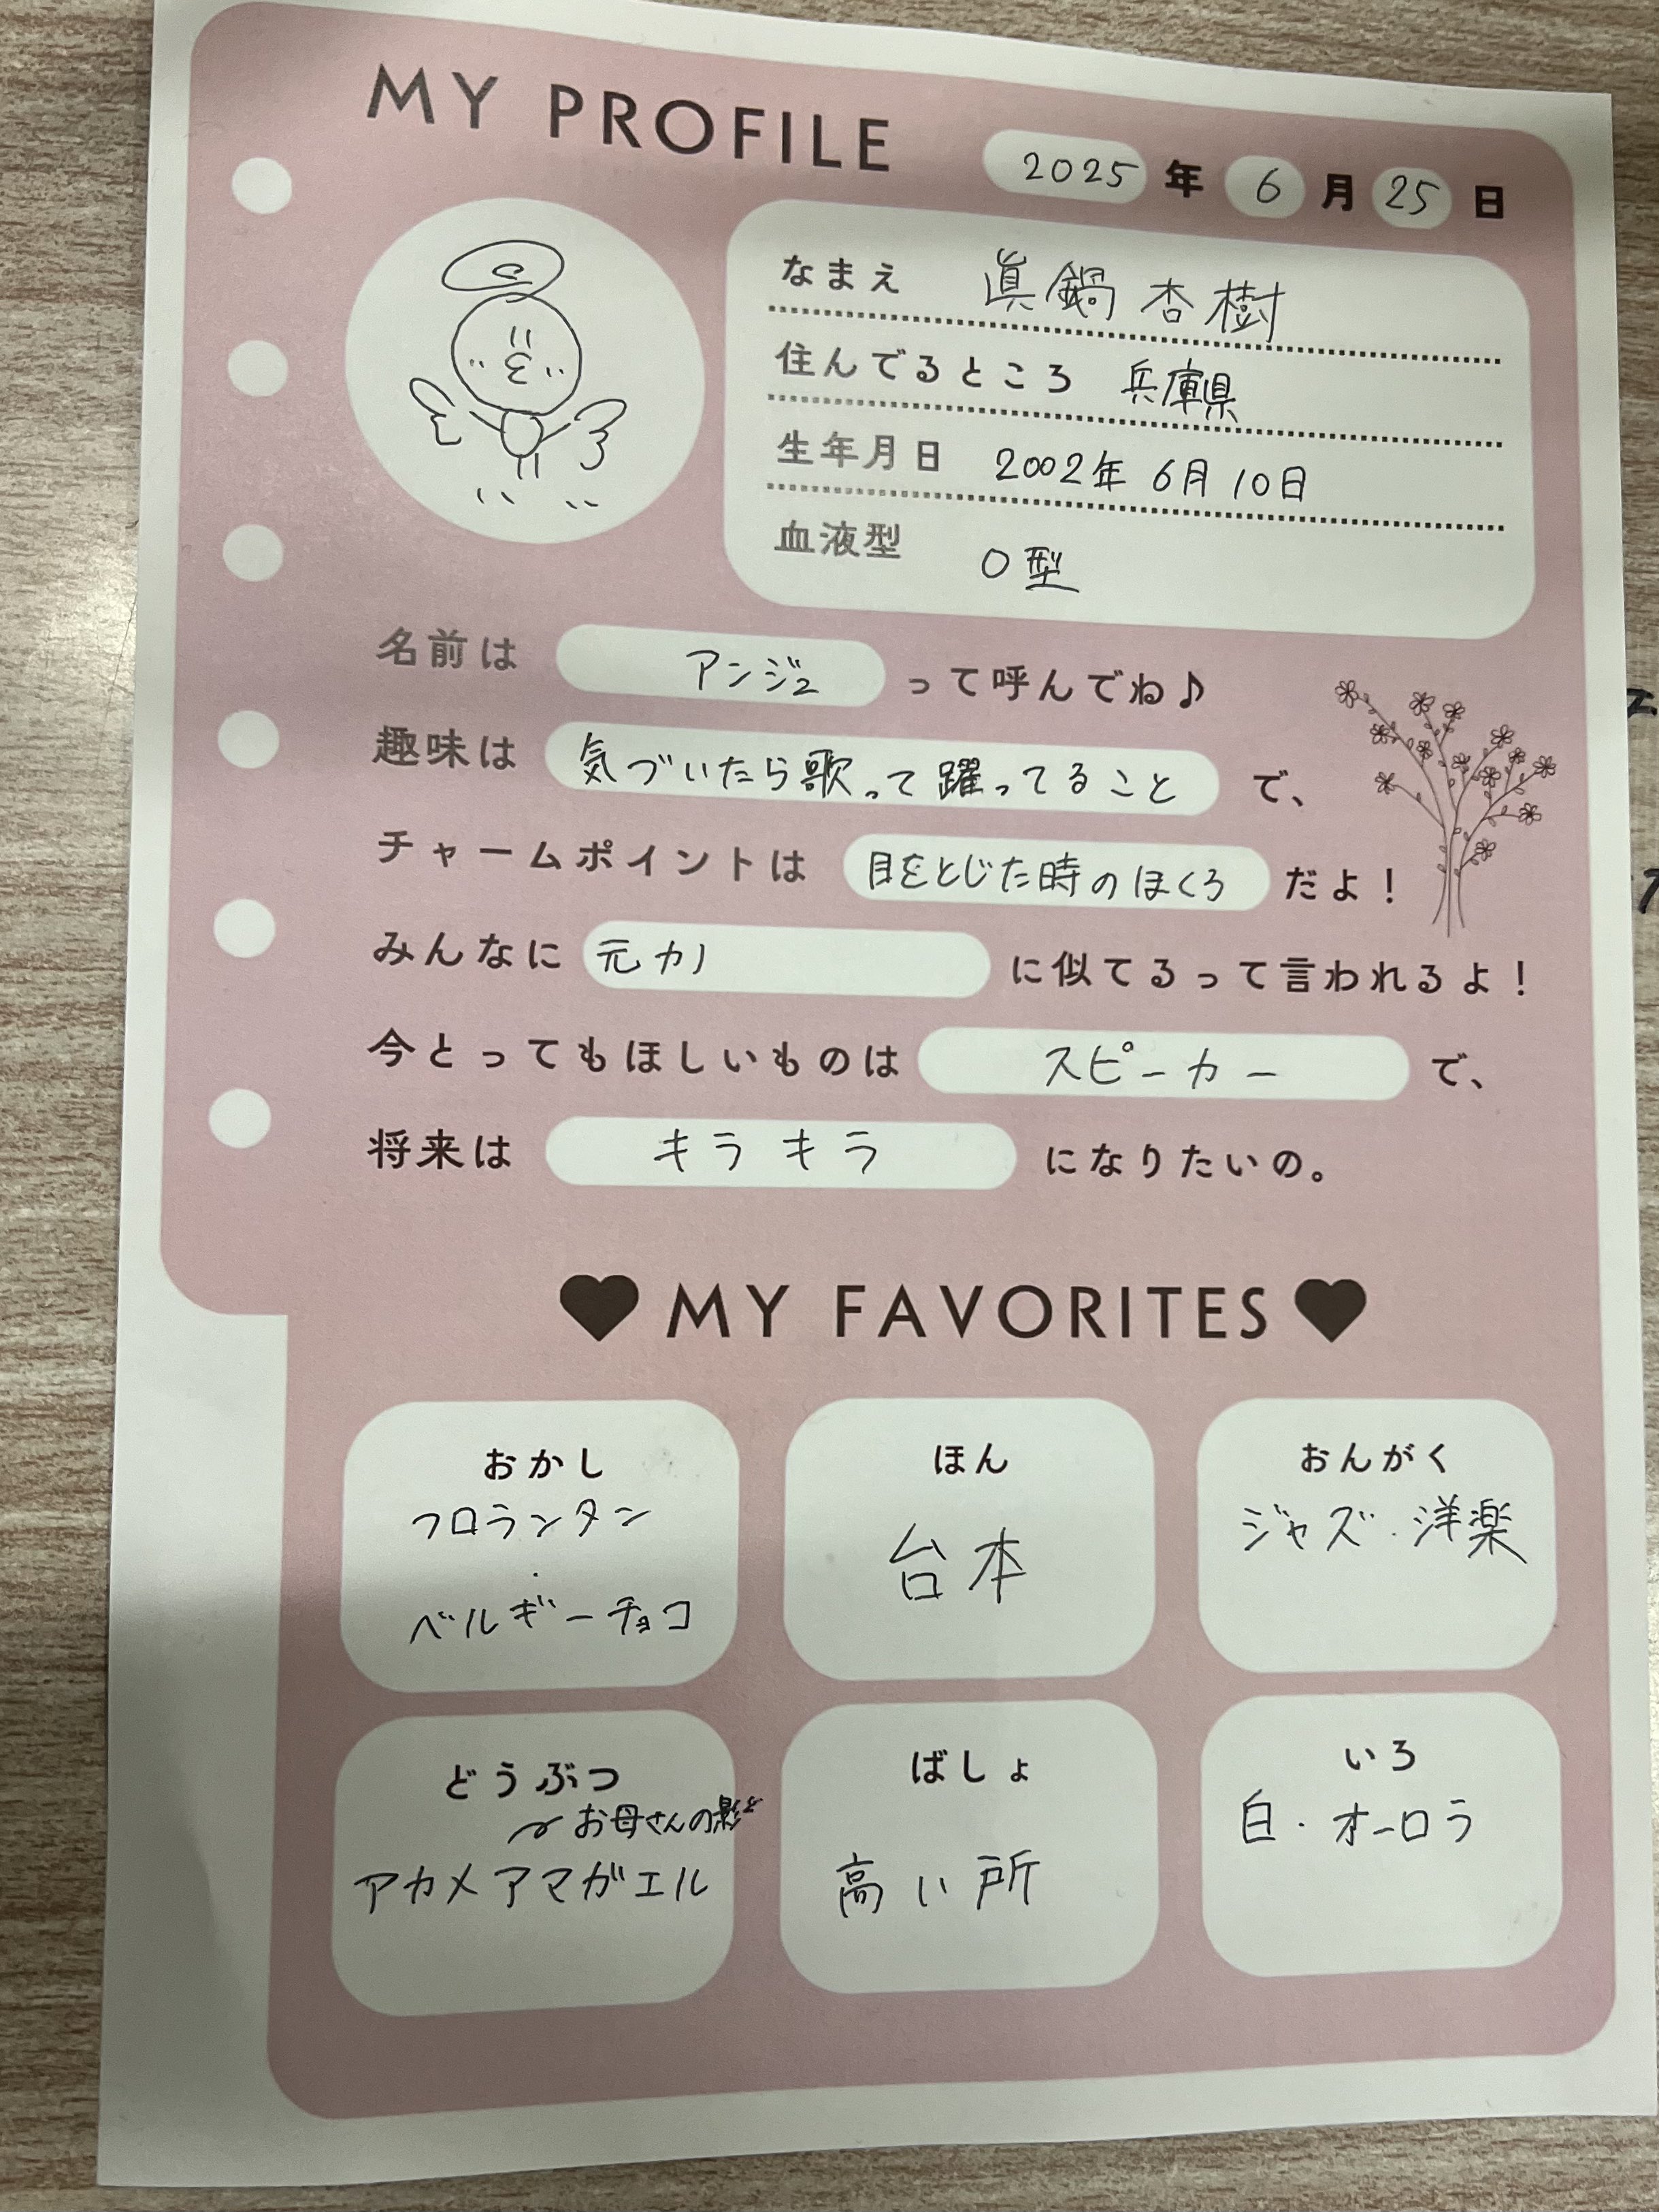 MY PROFILE
2025 年 6 月 25 日
なまえ 眞鍋 杏樹
住んでるところ 兵庫県
生年月日 2002年 6月 10日
血液型 O型
名前は アンジュ って呼んでね♪
趣味は 気づいたら歌って躍ってること で、
チャームポイントは 目をとじた時のほくろ だよ！
みんなに 元カノ に似てるって言われるよ！
今とってもほしいものは スピーカー で、
将来は キラキラ になりたいの。
♥ MY FAVORITES ♥
おかし
フロランタン
・
ベルギーチョコ
ほん
台本
おんがく
ジャズ・洋楽
どうぶつ
お母さんの影と
アカメアマガエル
ばしょ
高い所
いろ
白・オーロラ